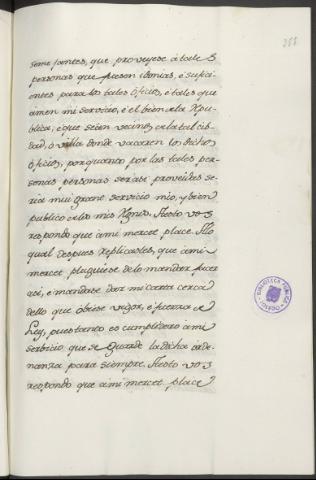 semejantes, que proveyese à tales
personas que fuesen idonias, è sufici-
entes para los tales oficios, è tales que
amen mi servicio, è el bien de la Repu-
blica, è que seien vecinos de la tal cib-
dad, ò villa donde vacaren los dichos
oficios, por quanto por las tales per-
sonas personas seràn proveidas se-
ria mui grant servicio mio, y bien
publico de los mis Regnos. A esto vos
respondo que à mi mercet place. A lo
qual despues replicastes, que à mi
mercet pluguiese de lo mandar facer
asi, è mandase dar mi carta cerca
dello que obiese vigor, è fuerza de
Ley, pues tanto es cumplidero à mi
serbicio que se guarde la dicha orde-
nanza para siempre. A esto vos
respondo que à mi mercet place
BIBLIOTECA PUBLICA
TOLEDO